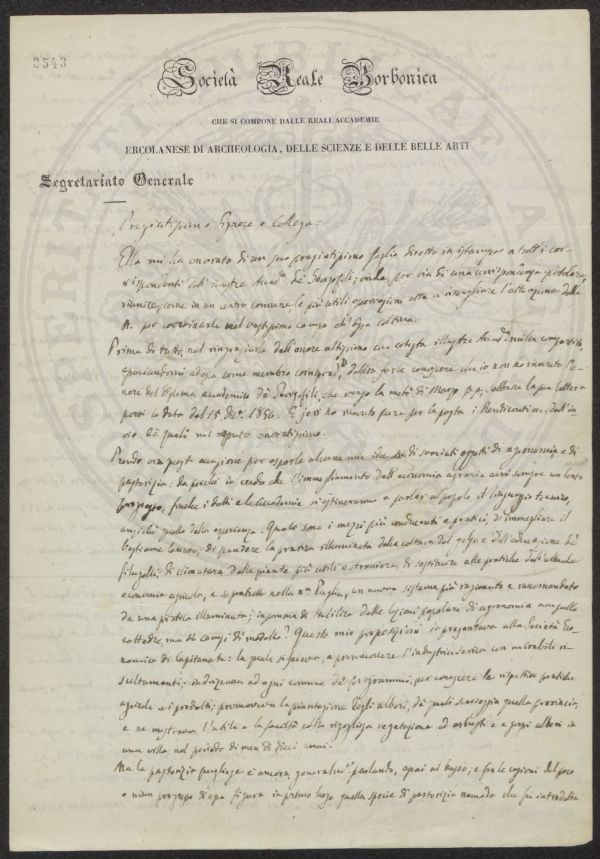 2543
Società Reale Borbonica
CHE SI COMPONE DALLE REALI ACCADEMIE
ERCOLANESE DI ARCHEOLOGIA, DELLE SCIENZE E DELLE BELLE ARTI
Segretariato Generale
Pregiatissimo Signore e Collega =
Ella mi ha onorato di un suo pregiatissimo foglio diretto in istampa a tutt'i cor-
rispondenti dell'illustre Accad.ª de' Georgofili; onde, per via di una corrispondenza
riunire, come in un centro comune, le più utili osservazioni atte a risvegliare l'attenzione della
per coordinarle nel vastissimo campo di ogni coltura.
Prima di tutto, nel ringraziarla dell'onore altissimo che cotesta illustre Accad.ª
come membro corrisp.te, debbo farle conoscere che io non ho ricevuto l'o-
nore del diploma accademico de' Georgofili, che verso la metà di Marzo p.p. sebbene la sua lettera
porti la data del 15 1856. E jeri ho ricevuto pure per la posta i Rendiconti ec. dell'in-
vio de' quali mi reputo onoratissimo.
Prendo ora quest'occasione per esporle alcune mie idee di svariati oggetti di agronomia e di
pastorizia: da perché io credo che l'immegliamento dell'economia agraria avrà sempre un lento
progresso, finché i dotti e le Accademie si ostineranno a parlar al popolo il linguaggio teorico,
anziché quello della esperienza. Quali sono i mezzi più conducenti e pratici, di immegliare il
bestiame lanuto, di spandere la pratica illuminata della coltura del gelso e dell'educazione de'
filugelli; di climatare delle piante più utili e straniere, di sostituire alle pratiche dell'attuale
economia agricola, e soprattutto nella n.ra Puglia, un nuovo sistema più ragionato e raccomandato
da una pratica illuminata; insomma di stabilire delle lezioni popolari di agronomia non sulle
cattedre, ma ne' campi di modello? Queste mie proposizioni io presentava alla Società Eco-
nomica di Capitanata: la quale si faceva a promuovere l'industria serica con mirabili ri-
sultamenti; indirizzava ad ogni comune de' programmi, per conoscere le rispettive pratiche
agricole e i prodotti; promoveva la piantagione degli alberi, de' quali scarseggia quella provincia;
e ne mostrava l'utile e la facilità colla rigogliosa vegetazione ad arbusti e a grossi alberi in
una villa nel periodo di men di dieci anni.
Ma la pastorizia pugliese è ancora generalm.te parlando, assai al basso; e fra le cagioni del poco
o niun progresso di essa figura in primo luogo quella specie di pastorizia nomada che fu introdotta